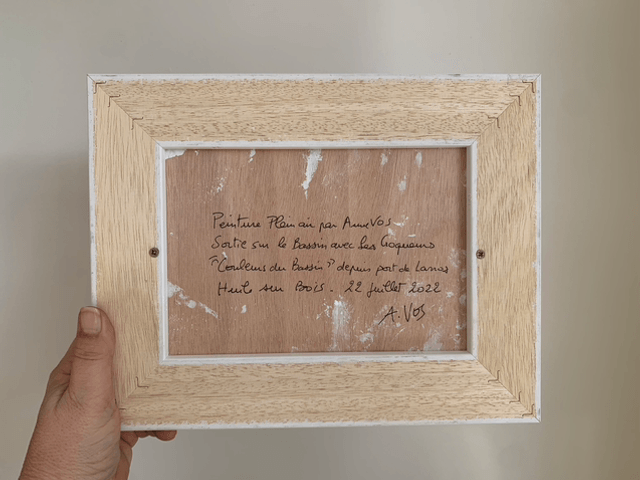 Peinture Plein air par Anne VOS
Sortie sur le Bassin avec les Croqueurs
"Couleurs du Bassin" depuis port de Larros
Huile sur Bois. 22 juillet 2022
A. VOS